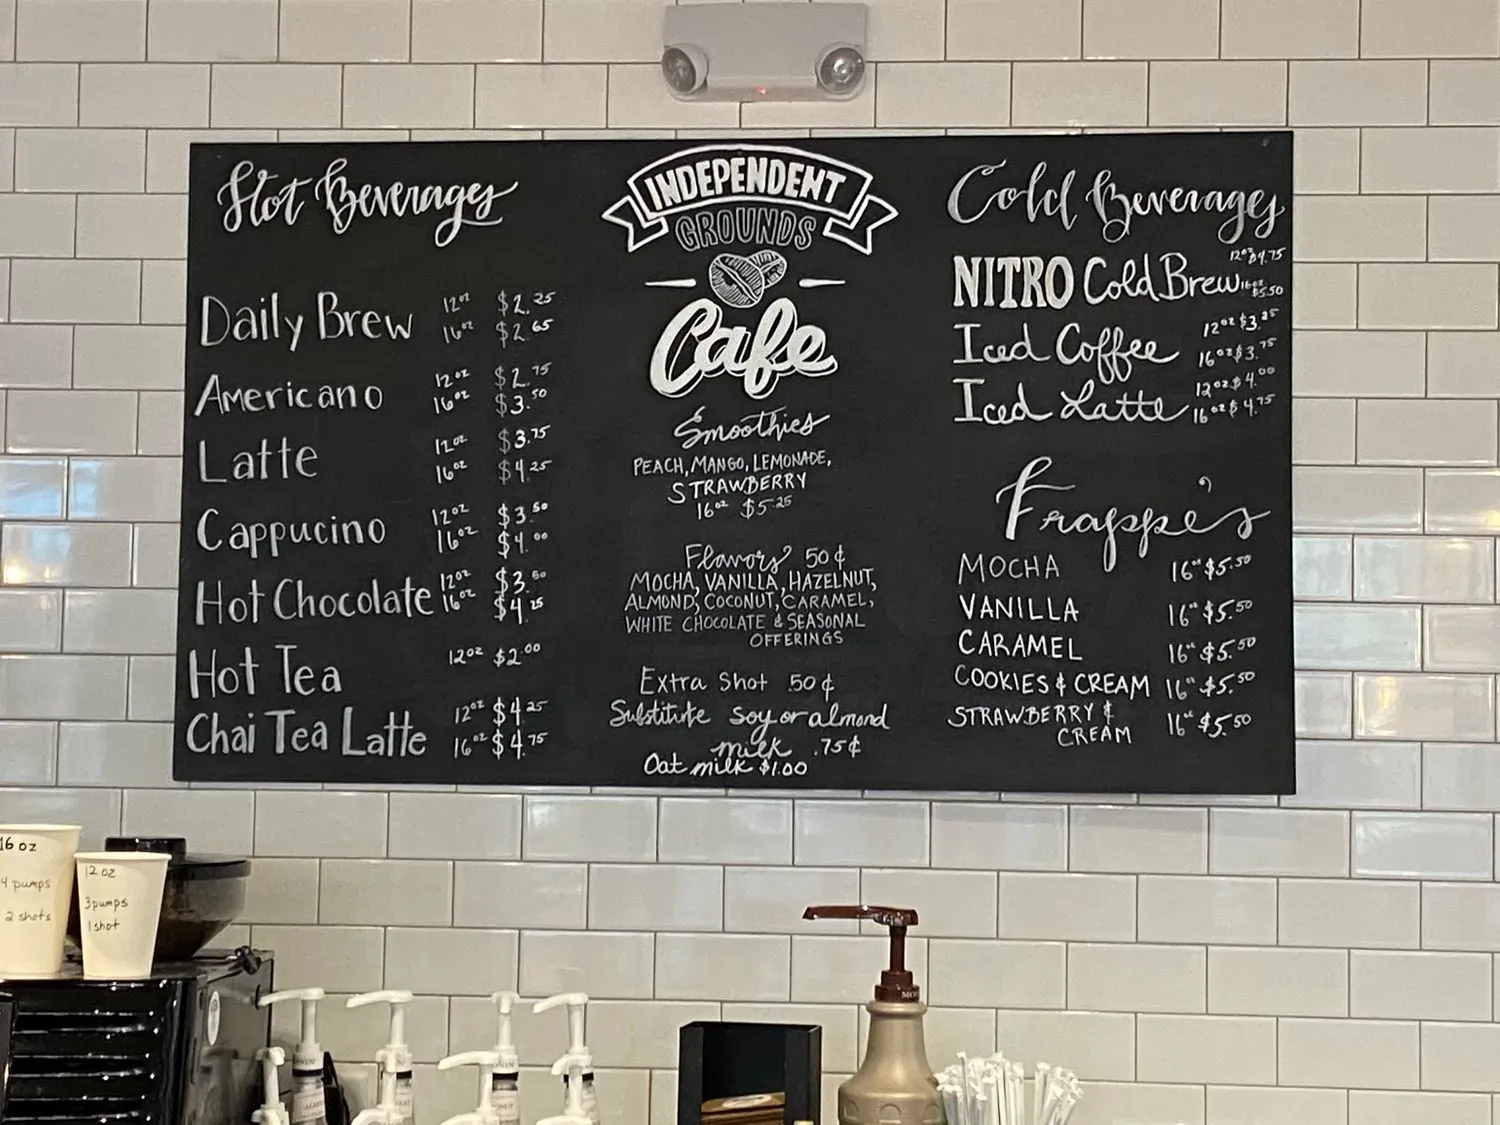 Hot Beverages
Daily Brew 12oz $2.25
16oz $2.65
Americano 12oz $2.75
16oz $3.50
Latte 12oz $3.75
16oz $4.25
Cappucino 12oz $3.50
16oz $4.00
Hot Chocolate 12oz $3.50
16oz $4.25
Hot Tea 12oz $2.00
Chai Tea Latte 12oz $4.25
16oz $4.75
INDEPENDENT
GROUNDS
Cafe
Smoothies
PEACH, MANGO, LEMONADE,
STRAWBERRY
16oz $5.25
Flavors 50¢
MOCHA, VANILLA, HAZELNUT,
ALMOND, COCONUT, CARAMEL,
WHITE CHOCOLATE & SEASONAL
OFFERINGS
Extra Shot .50¢
Substitute soy or almond
milk .75¢
Oat milk $1.00
Cold Beverages
NITRO Cold Brew 12oz $4.75
16oz $5.50
Iced Coffee 12oz $3.25
16oz $3.75
Iced Latte 12oz $4.00
16oz $4.75
Frappe's
MOCHA 16oz $5.50
VANILLA 16oz $5.50
CARAMEL 16oz $5.50
COOKIES & CREAM 16oz $5.50
STRAWBERRY & 16oz $5.50
CREAM
16 oz
4 pumps
2 shots
12 oz
3 pumps
1 shot